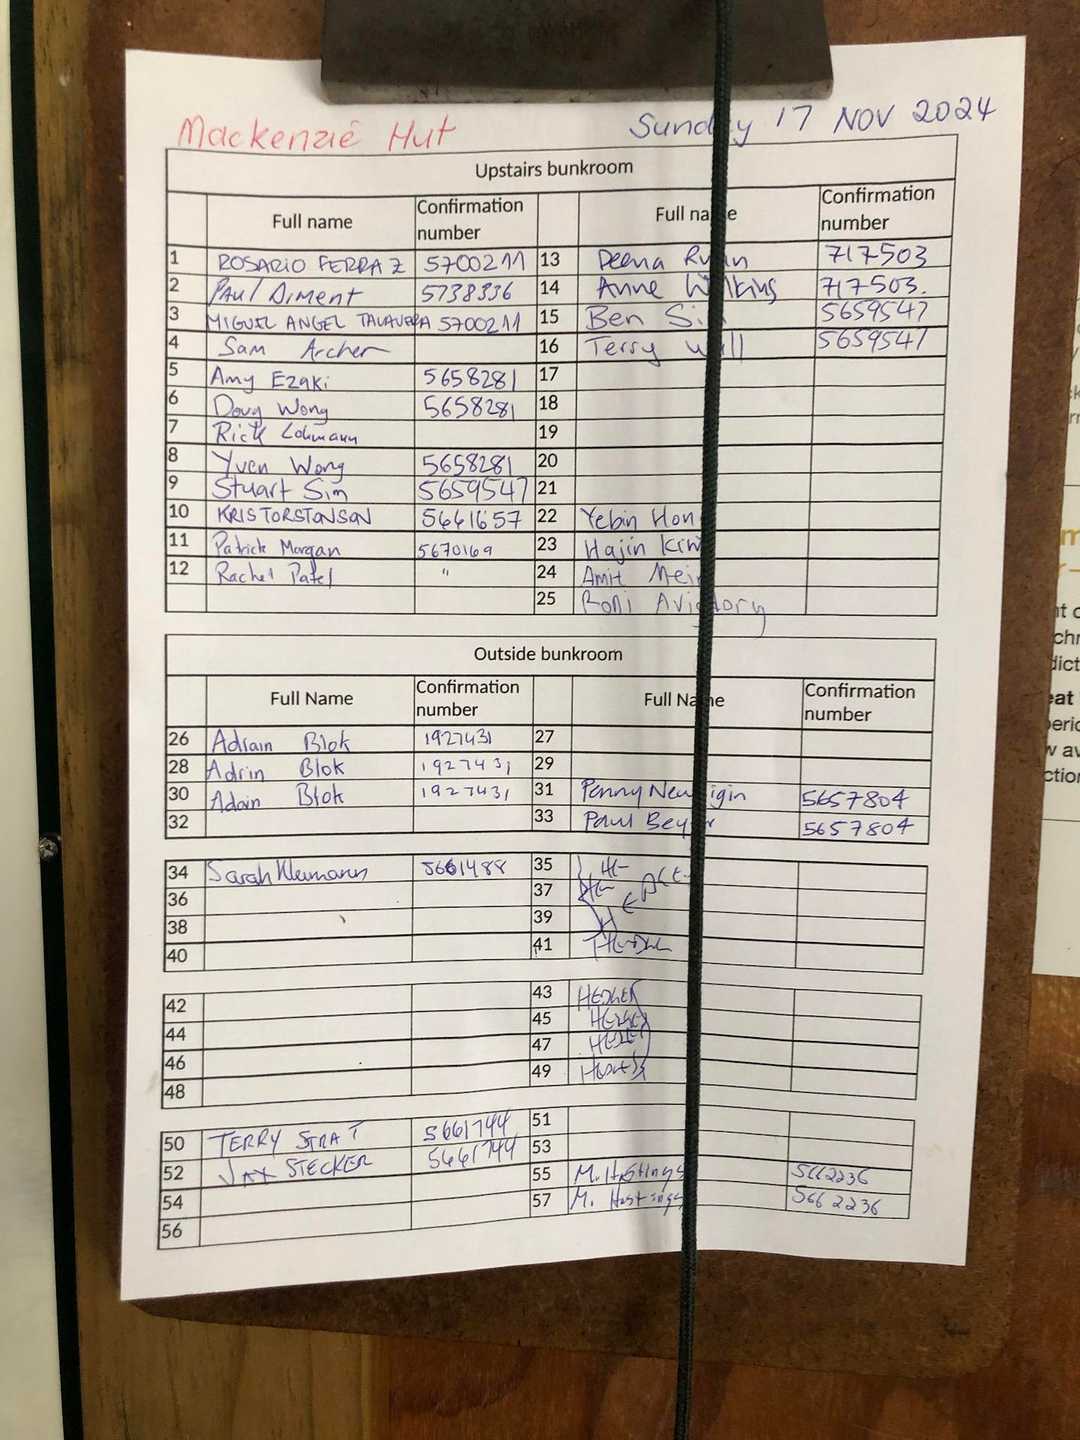 Mackenzie Hut Sunday 17 NOV 2024
Upstairs bunkroom
Full name Confirmation number Full name Confirmation number
1 ROSARIO FERRAZ 5700211 13 Deena 717503
2 PAUL DIMENT 5738336 14 Anne 717503.
3 MIGUEL ANGEL TALAVERA 5700211 15 Ben Sim 5659547
4 Sam Archer 16 Terry 5659547
5 Amy Ezaki 5658281 17
6 Doug Wong 5658281 18
7 Rick Lohmann 19
8 Yuen Wong 5658281 20
9 Stuart Sim 5659547 21
10 KRISTORSTONSON 5661657 22 Yebin Hon
11 Patrick Morgan 5670169 23 Hajin Kim
12 Rachel Patel " 24 Amit Meir
25 Roni
Outside bunkroom
Full Name Confirmation number Full Name Confirmation number
26 Adrain Blok 1927431 27
28 Adrin Blok 1927431 29
30 Adain Blok 1927431 31 Penny 5657804
32 33 Paul 5657804
34 Sarah Kleimann 5661488 35
36 37
38 39
40 41
42 43
44 45
46 47
48 49
50 TERRY STRAT 5661744 51
52 JAX STECKER 5661744 53
54 55 M. Hastings 5662236
56 57 M. Hastings 5662236